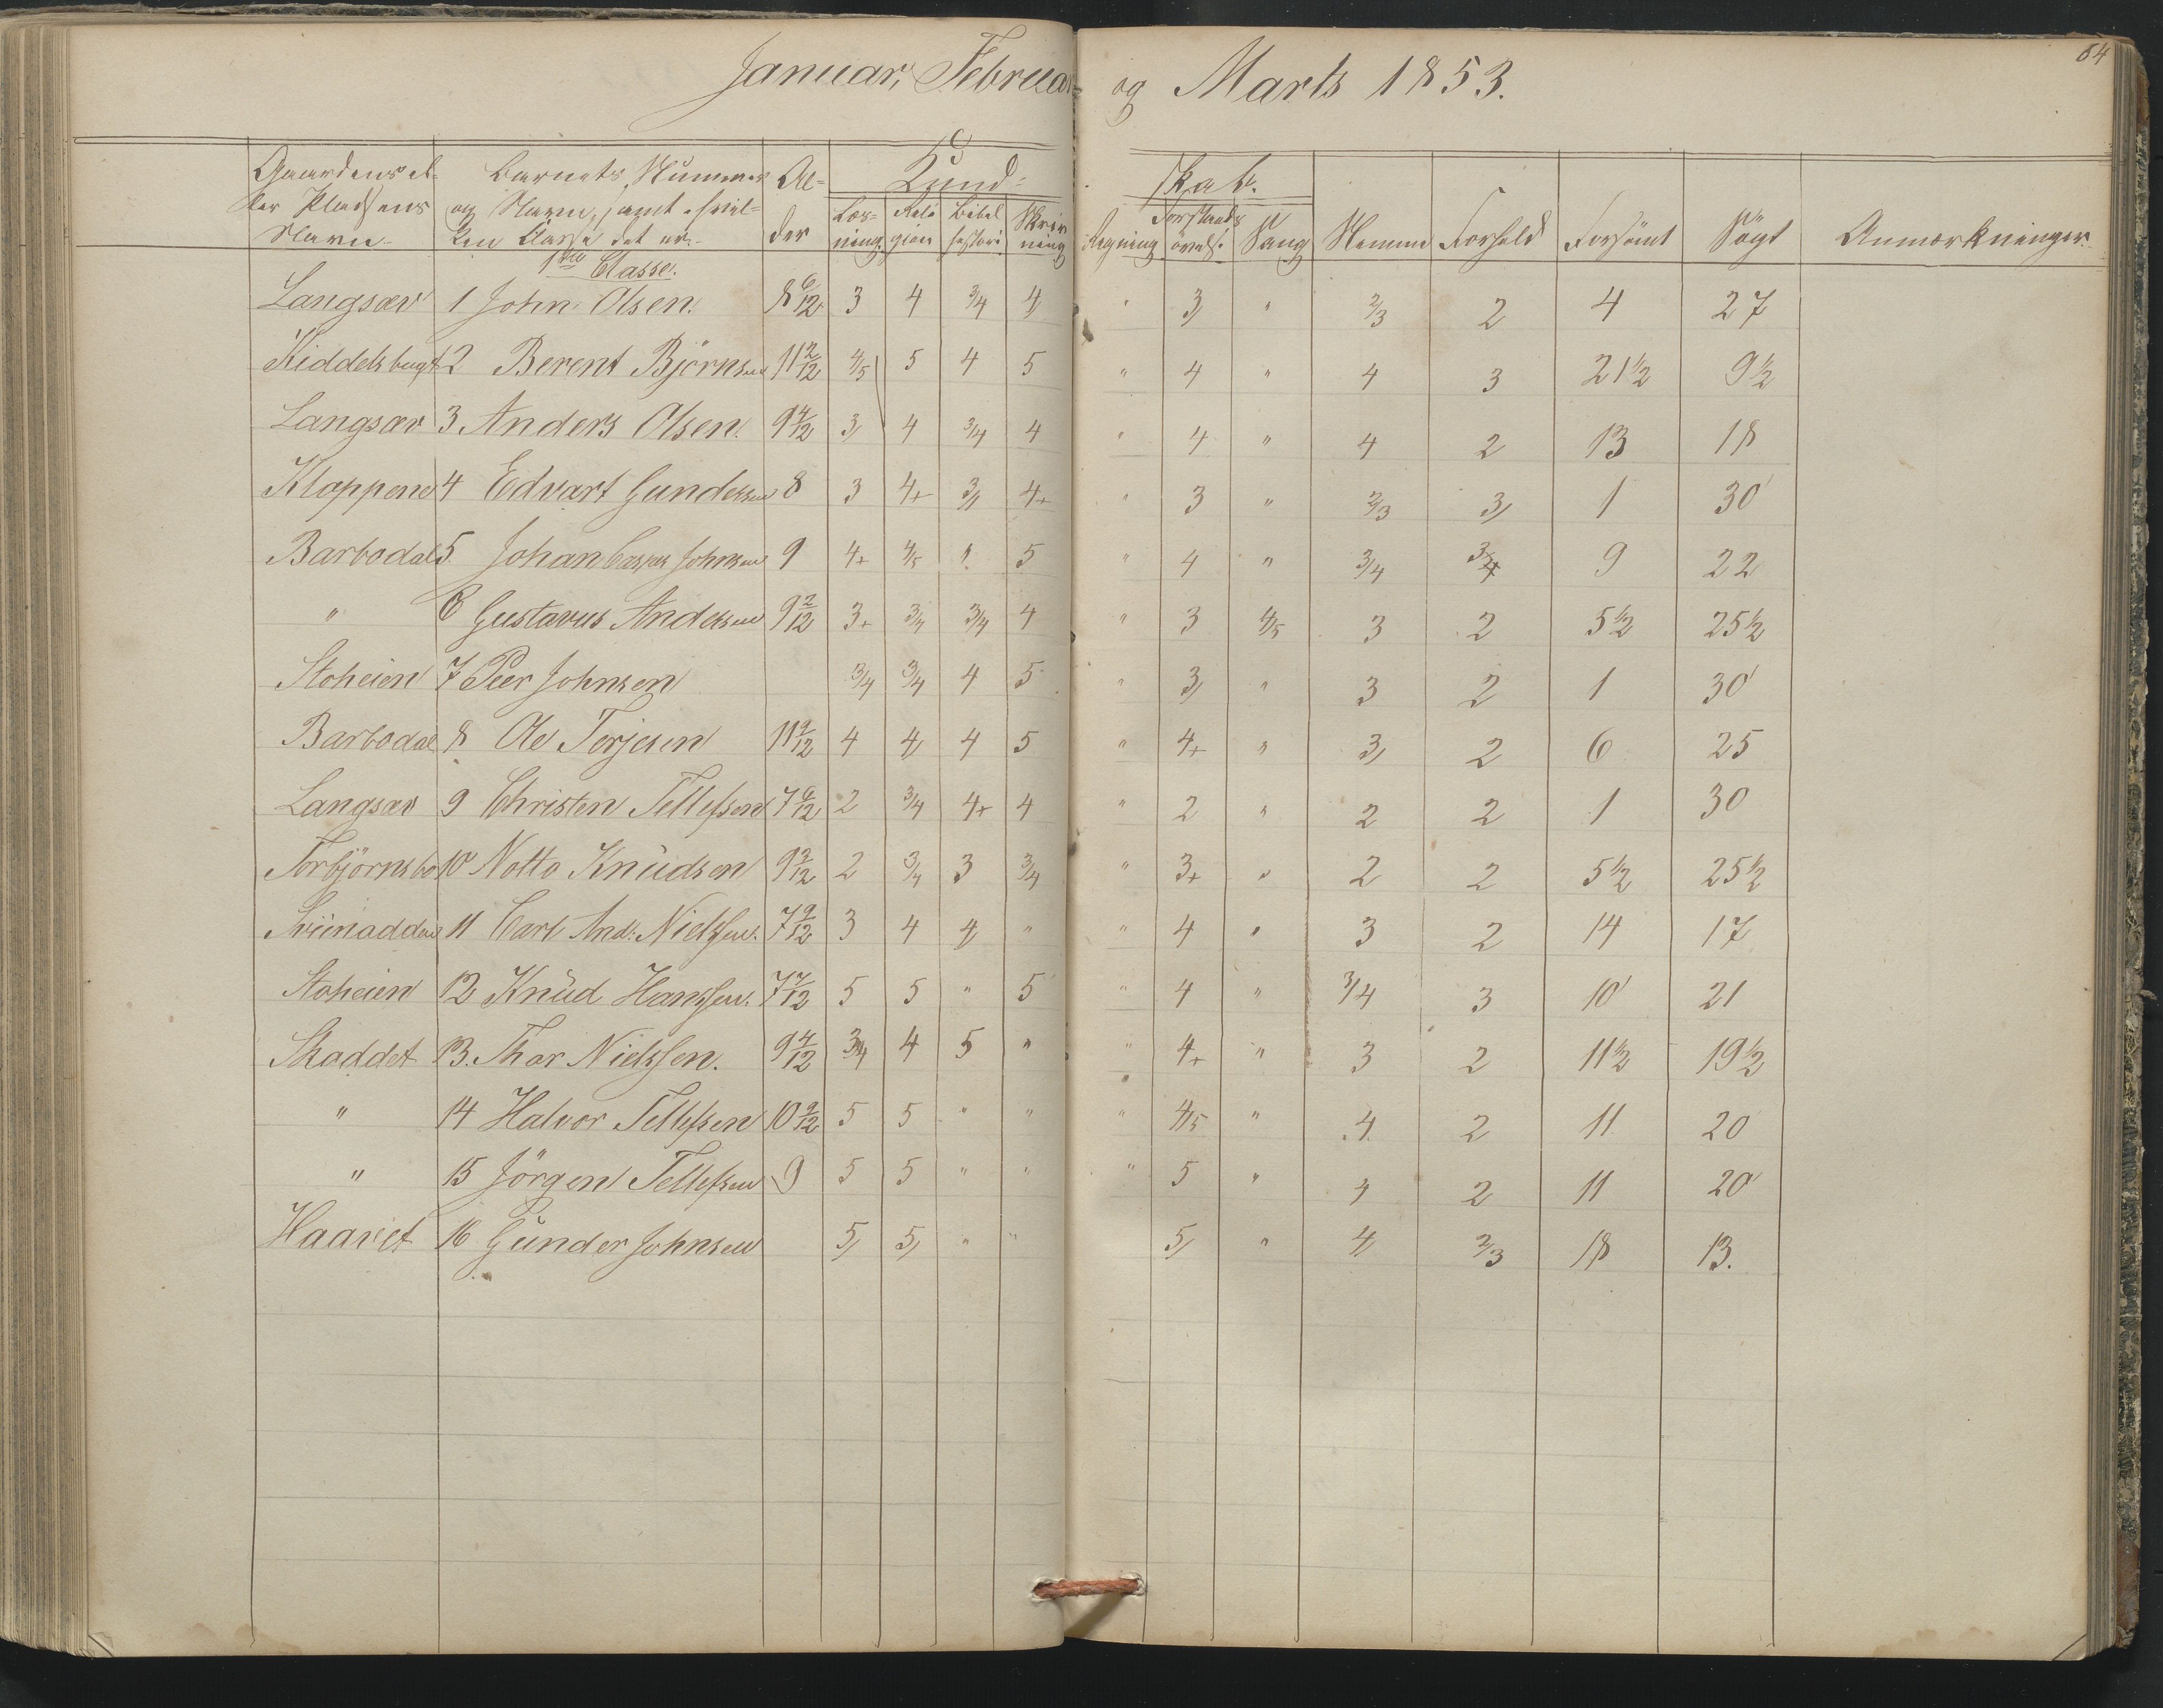 64
Januar, Februar og Marts 1853.
Gaardens el- Barnets Nummer Al- Kund- skab.
ler Pladsens og Navn, samt i hvil- der Læs- Reli Bibel Skriv Regning Forstands Sang Nemme Forhold Forsömt Sögt Anmærkninger
Navn ken Classe det er. ning gion histori ning övelse
1ste Classe.
Langsæv 1 John Olsen. 8 6/12 3 4 3/4 4/ " 3/ " 2/3 2 4 27
Kiddelsbugt 2 Berent Björnsen 11 2/12 4/5 5 4 5 " 4 " 4 3 21 1/2 9 1/2
Langsæv 3 Anders Olsen. 9 4/12 3/ 4 3/4 4 " 4 " 4 2 13 18
Kloppene 4 Edvart Gundersen 8 3 4+ 3/4 4+ " 3 " 2/3 3/ 1 30
Barbodal 5 Johan Casper Johnsen 9 4+ 4/5 " 5 " 4 " 3/4 3/4 9 22
" 6 Gustavus Andersen 9 2/12 3+ 3/4 3/4 4 " 3 4/5 3 2 5 1/2 25 1/2
Stoheien 7 Peer Johnsen 3/4 3/4 4 5 " 3/ " 3 2 1 30
Barbodal 8 Ole Terjesen 11 9/12 4 4/ 4 5 " 4+ " 3/ 2 6 25
Langsæv 9 Christen Tellefsen 7 6/12 2 3/4 4+ 4 " 2 " 2 2 1 30
Torbjörnsbo 10 Notto Knudsen 9 3/12 2 3/4 3 3/4 " 3+ " 2 2 5 1/2 25 1/2
11 Carl And: Nielsen. 7 9/12 3 4 4/ " " 4 " 3 2 14 17
Stoheien 12 Knud Hansen. 7 7/12 5 5 " 5 " 4 " 3/4 3 10 21
Skaddet 13. Thor Nielsen. 9 4/12 3/4 4 5 " " 4+ " 3 2 11 1/2 19 1/2
" 14 Halvor Tellefsen 10 9/12 5 5 " " " 4/5 " 4 2 11 20
" 15 Jörgen Tellefsen 9 5 5 " " " 5 " 4 2 11 20
Haaviet 16 Gunder Johnsen 5/ 5/ " " 5/ " 4/ 2/3 18 13.